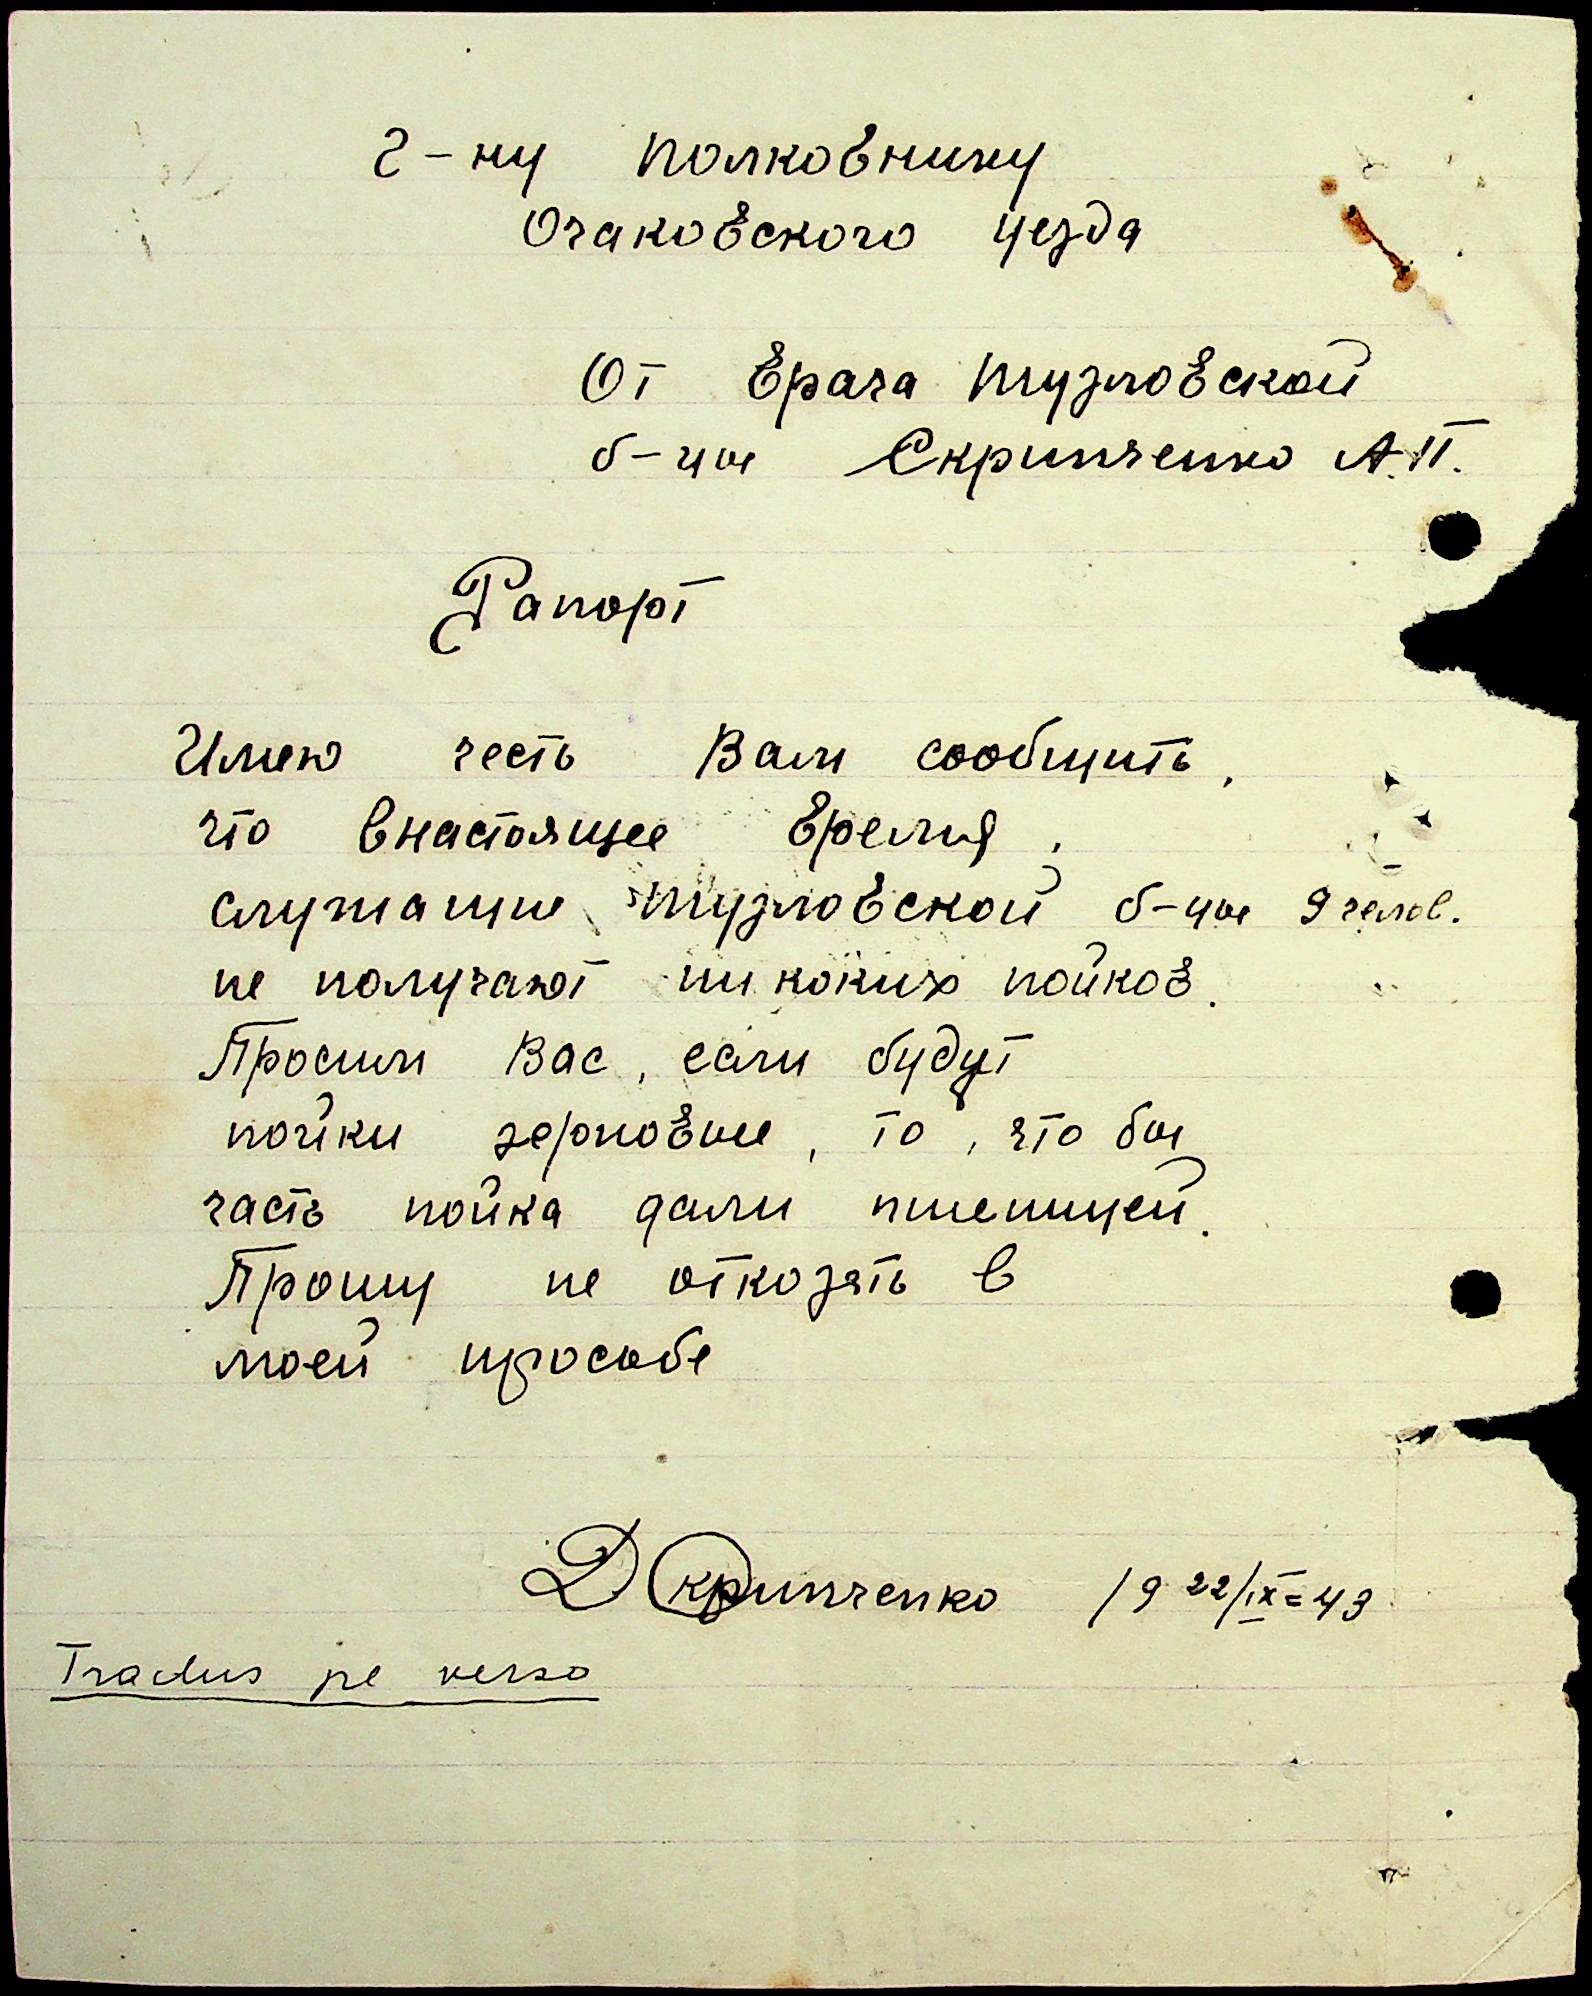 г-ну полковнику
Очаковского уезда
От врача тузловской
б-цы Скрипченко А.П.
Рапорт
Имею честь Вам сообщить,
что внастоящее время,
служащие тузловской б-цы 9 челов.
не получают ни коких пойков.
Просим Вас, если будут
пойки зерновые, то, что бы
часть пойка дали пшеницей.
Прошу не откозать в
моей прособе
Скрипченко 19 22/IX=43
Tradus pe verso